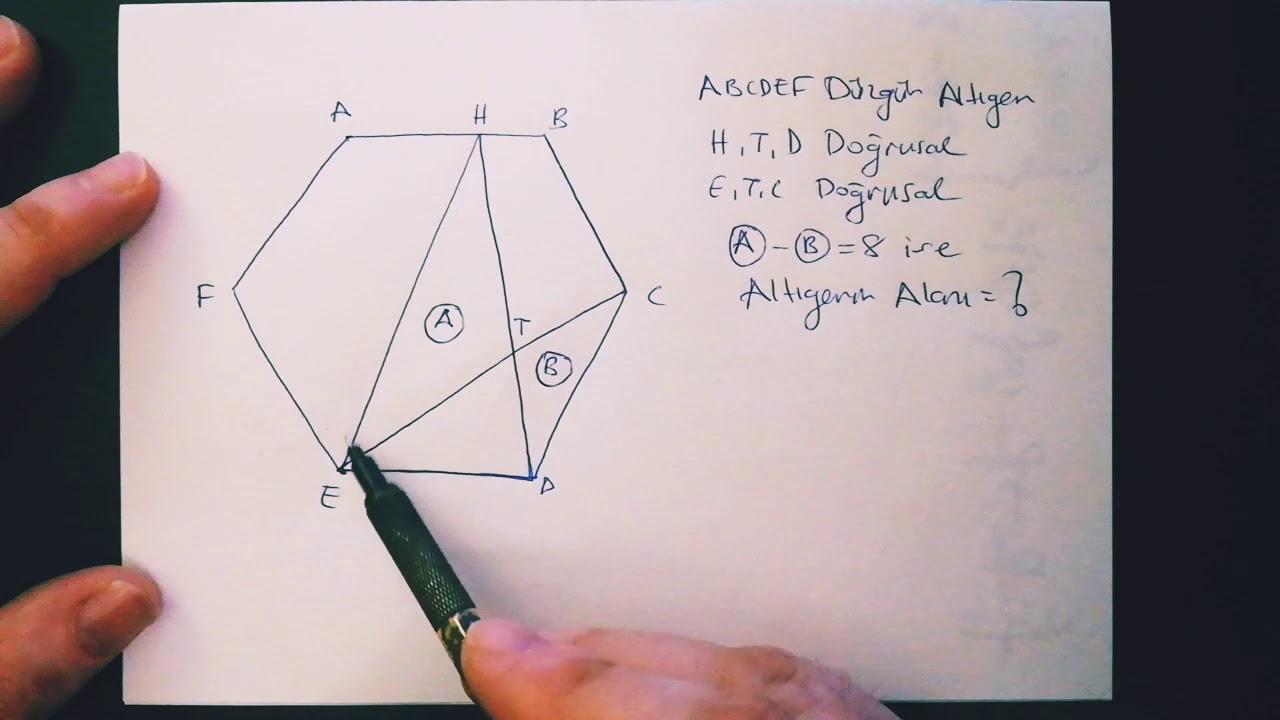 A H B
ABCDEF Düzgün Altıgen
H, T, D Doğrusal
E, T, C Doğrusal
A - B = 8 ise
Altıgenin Alanı = ?
F C
A T
B
E D